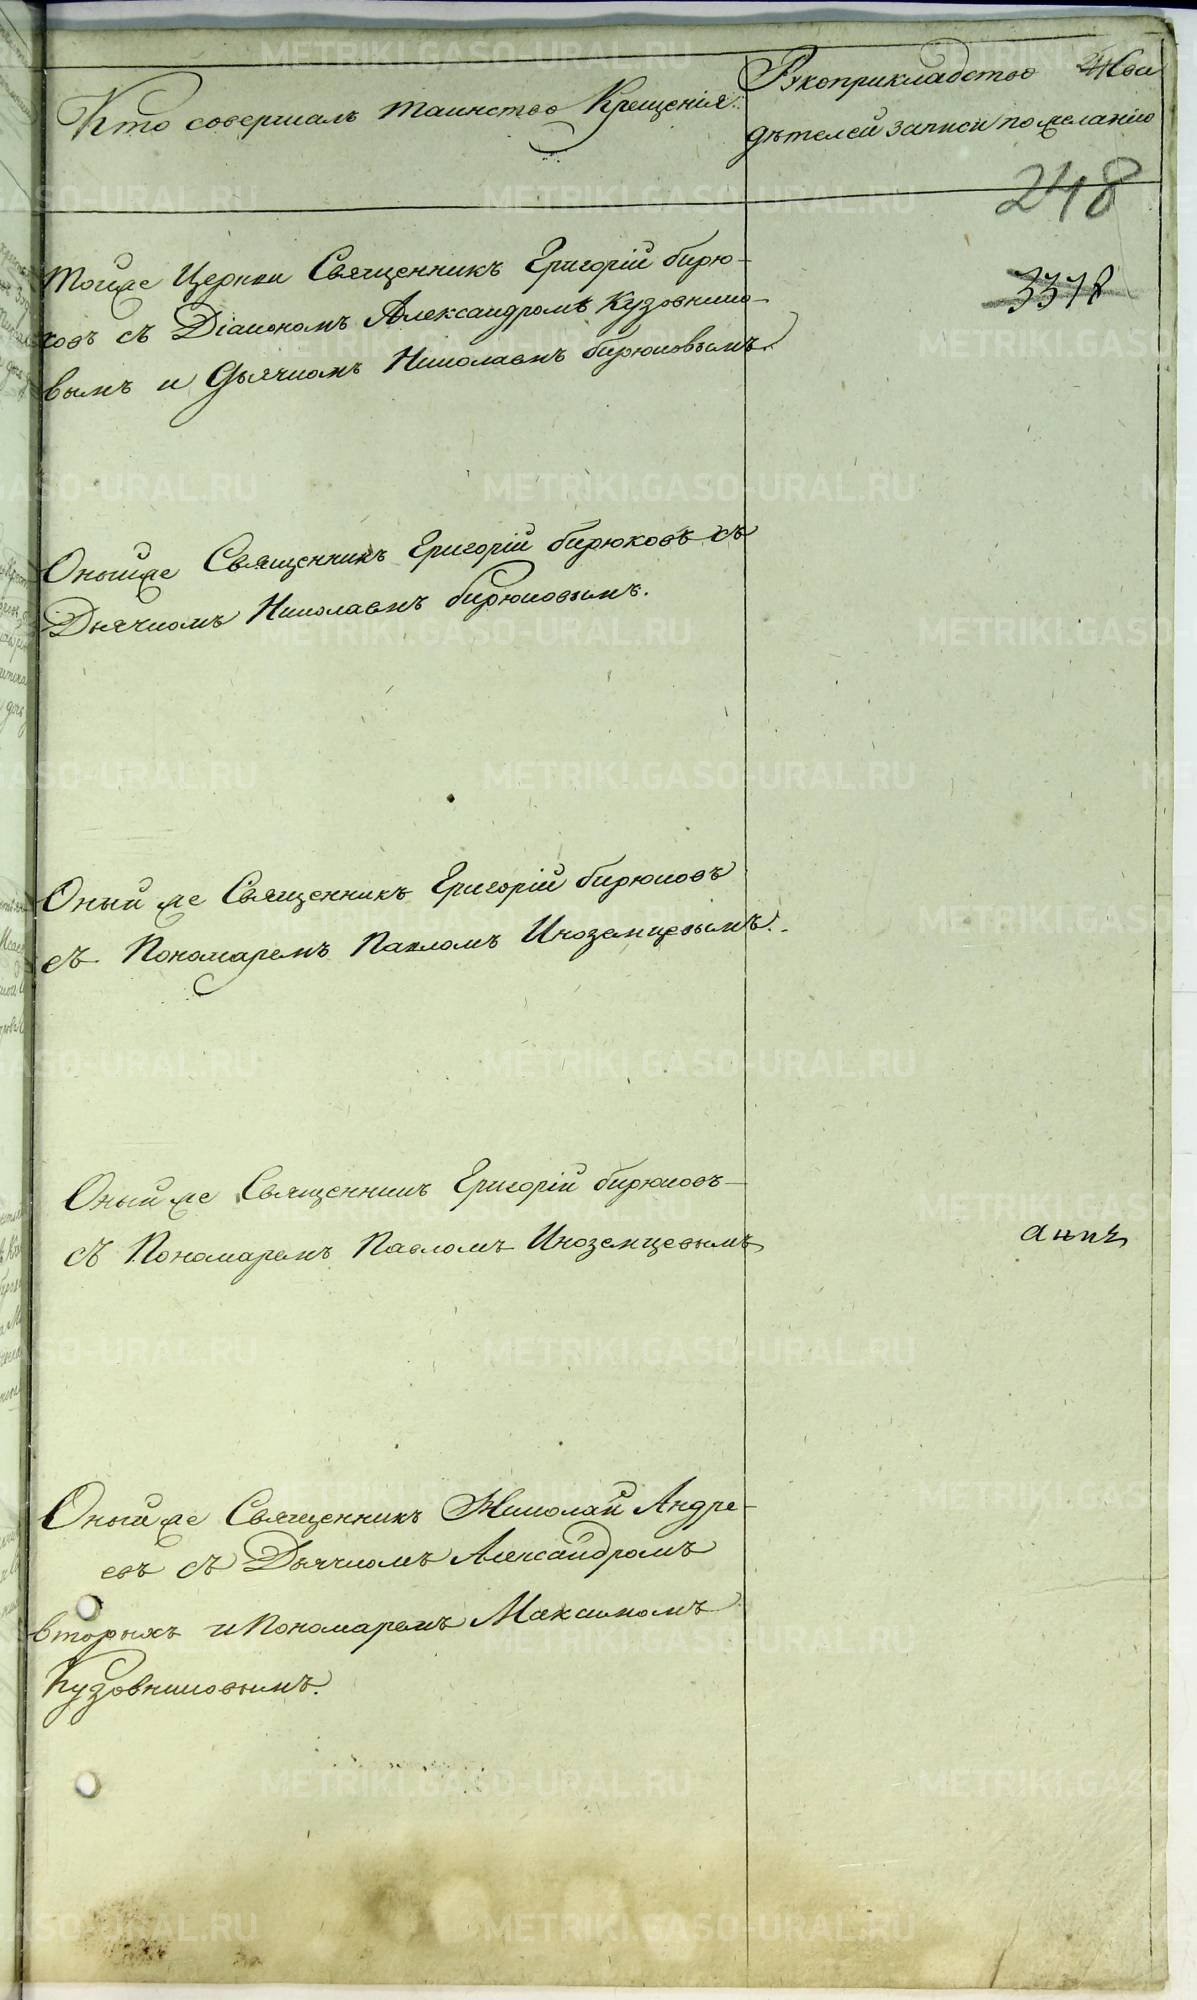 Кто совершалъ таинство Крещенія.
Рукоприкладство Сви
дѣтелей записи по желанію
248
3378
Тойже Церкви Священникъ Григорій Бирю-
ковъ съ Діакономъ Александромъ Кузовнико-
вымъ и Дьячкомъ Николаемъ Бирюковымъ.
Оныйже Священникъ Григорій Бирюковъ съ
Дьячкомъ Николаемъ Бирюковымъ.
Оный же Священникъ Григорій Бирюковъ
съ Пономаремъ Павломъ Иноземцевымъ.
Оныйже Священникъ Григорій Бирюковъ
съ Пономаремъ Павломъ Иноземцевымъ
Оныйже Священникъ Николай Андре-
евъ съ Дьячкомъ Александромъ
и Пономаремъ Максимомъ
Кузовниковымъ.
METRIKI.GASO-URAL.RU